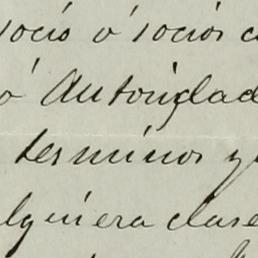 socio ó socios c
ó Autoridad
terminos y
alguiera clase